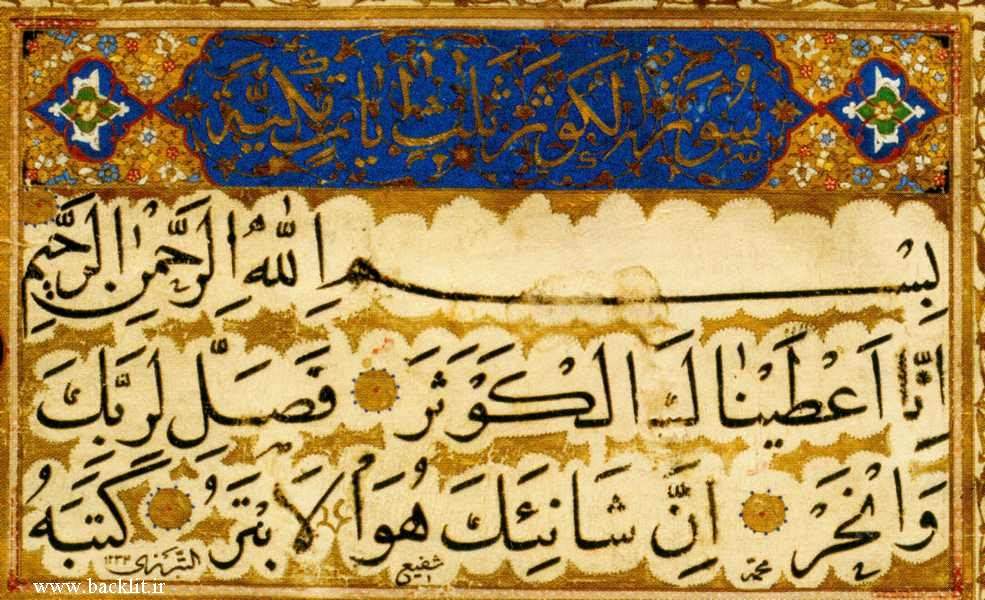 سُورَة الكَوثَر ثلث ايات مكيّة
بِسْمِ اللّٰهِ الرَّحْمٰنِ الرَّحِيمِ
اِنَّا اَعْطَيْنٰاكَ الْكَوْثَرَ فَصَلِّ لِرَبِّكَ
وَانْحَرْ اِنَّ شَانِئَكَ هُوَ الاَبْتَرُ كَتَبَهُ
محمد شفيع التبريزى
www.backlit.ir